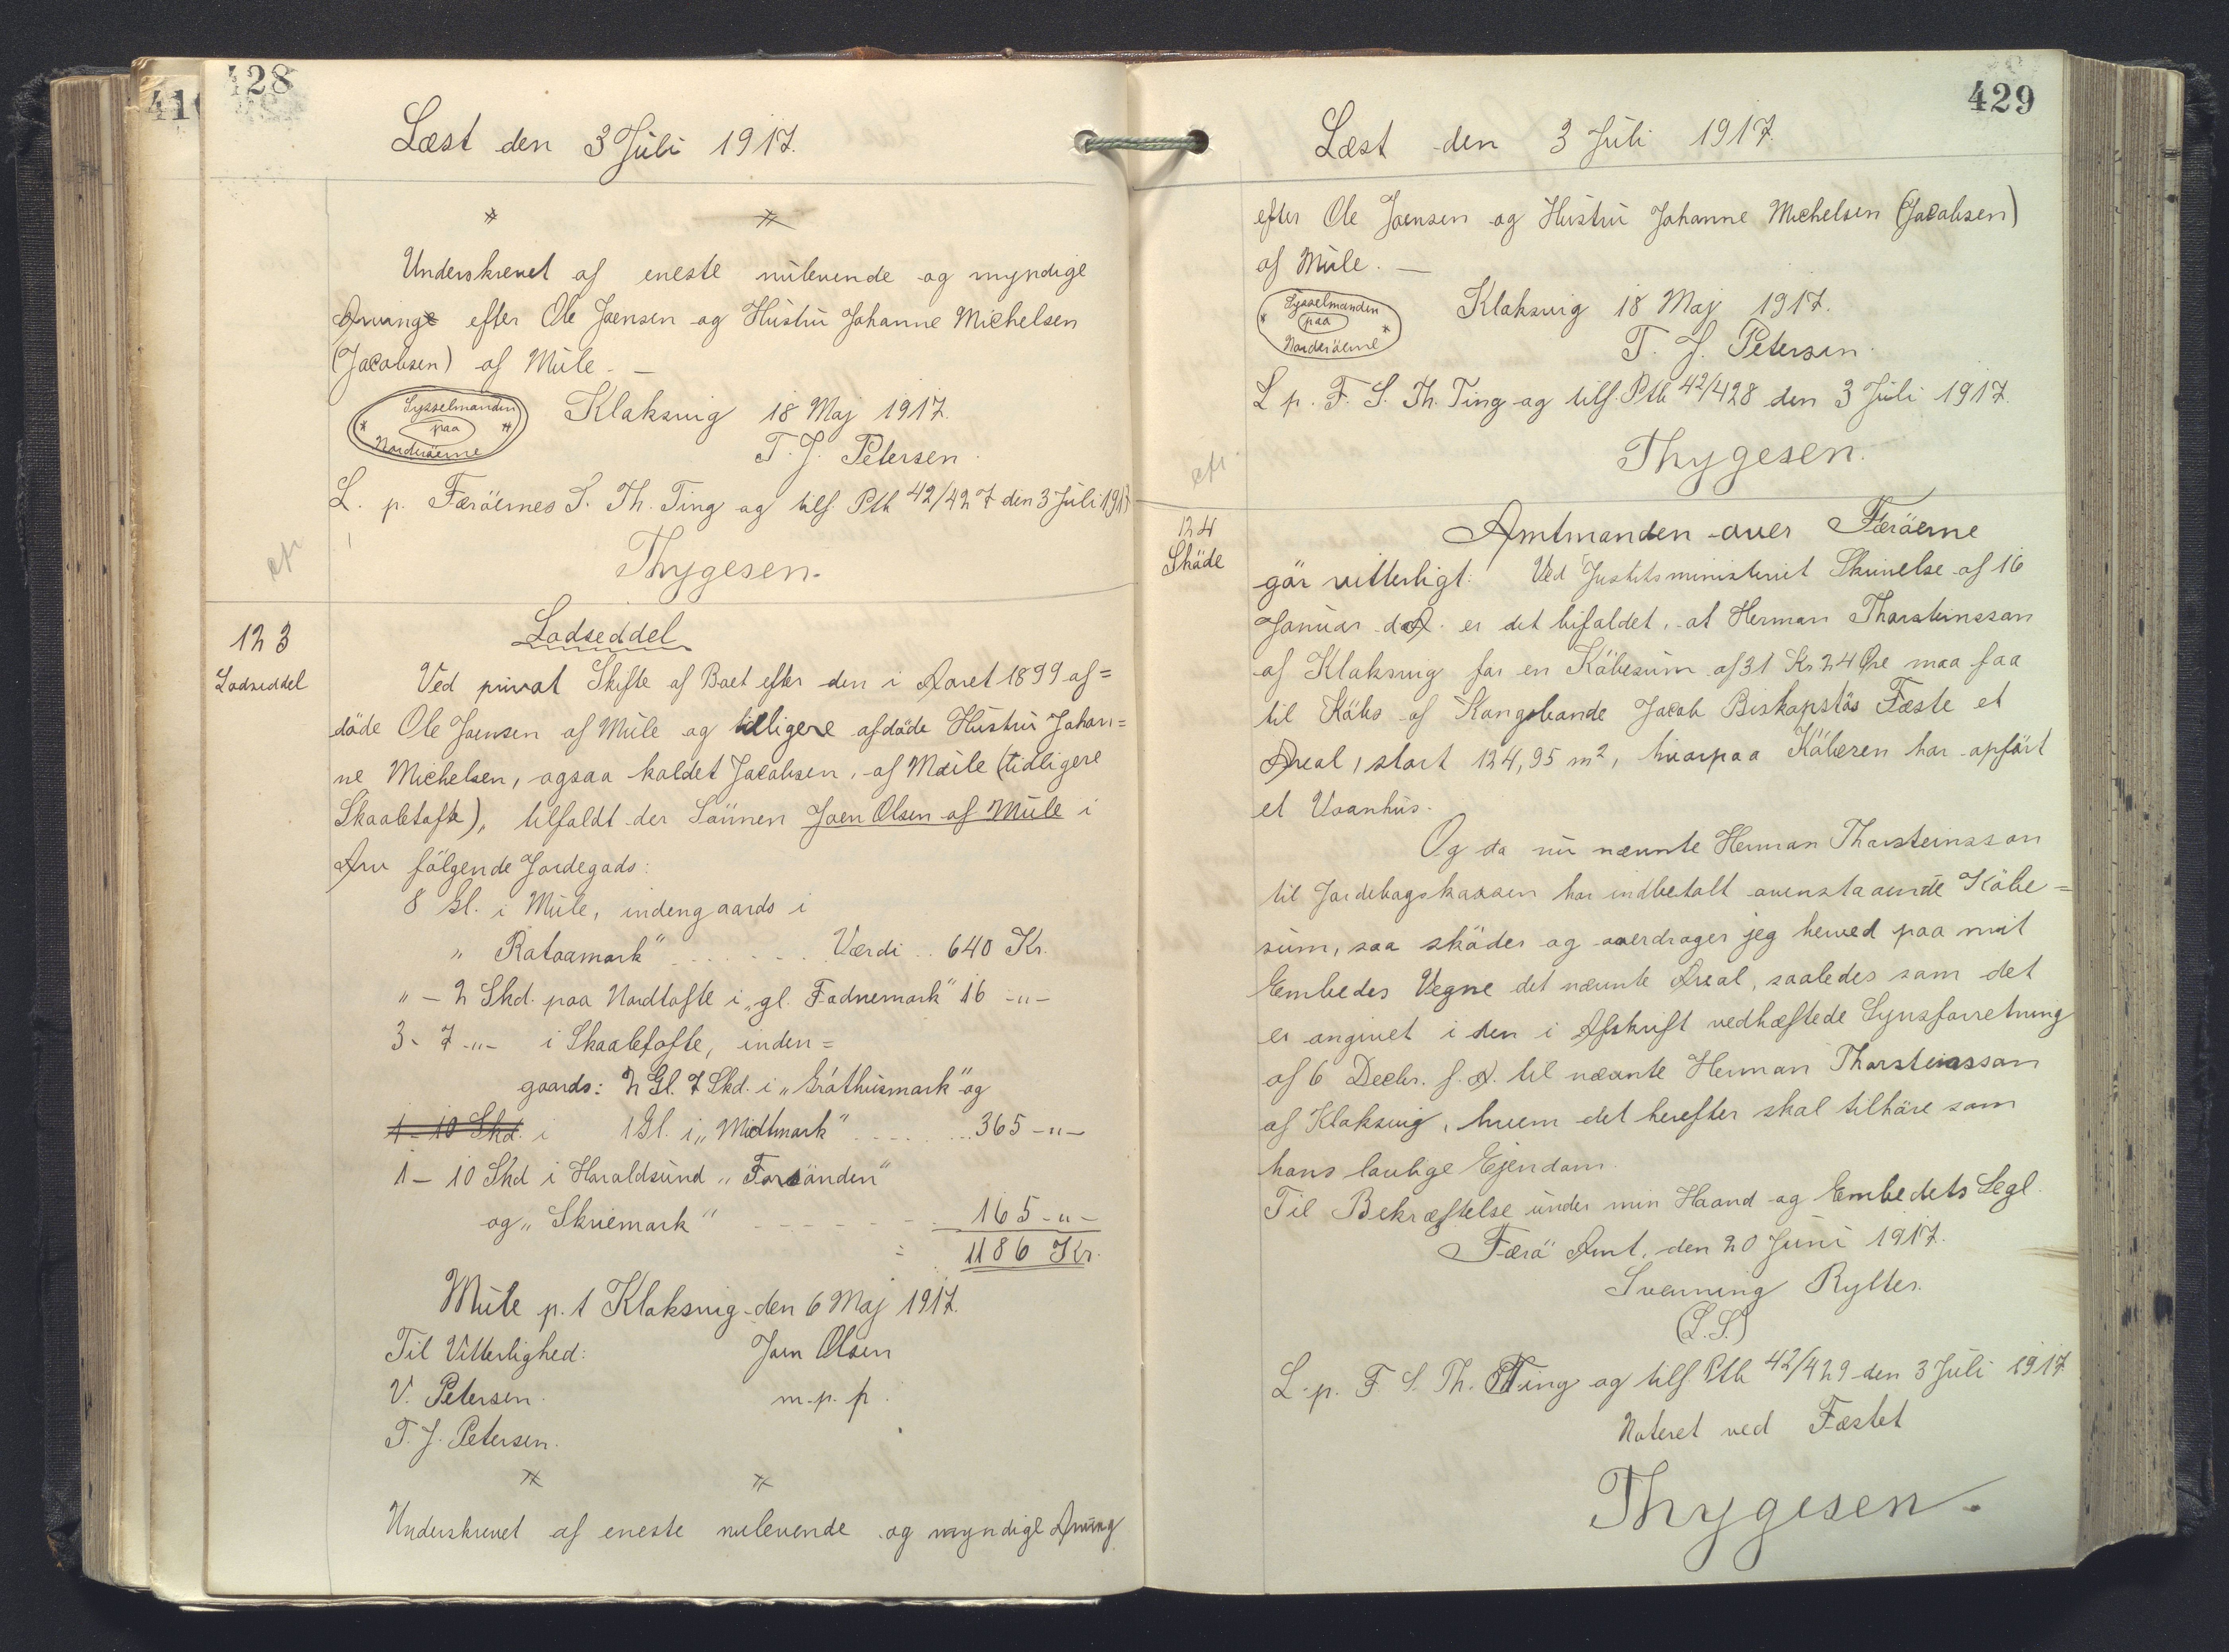 428
Læst den 3 Juli 1917.
Underskrevet af eneste nulevende og myndige
Arving efter Ole Joensen og Hustru Johanne Michelsen
(Jacobsen) af Mule. —
Sysselmanden
paa
Norderöerne
Klaksvig 18 Maj 1917.
T. J. Petersen.
L. p. Færöernes S. Th. Ting og tilf. Ptb 42/427 den 3 Juli 1917
Thygesen.
123
Lodseddel
Lodseddel
Ved privat Skifte af Boet efter den i Aaret 1899 af=
döde Ole Joensen af Mule og tilligere afdöde Hustru Johan=
ne Michelsen, ogsaa kaldet Jacobsen, af Mule (tidligere
Skaaletofte), tilfaldt der Sönnen Joen Olsen af Mule i
Arv fölgende Jordegods:
8 Gl. i Mule, indengaards i
" Rataamark" . . . . . . . Værdi .. 640 Kr.
" — 2 Skd. paa Nordtofte i "gl. Fadnemark" 16 -"-
3 - 7 -"- i Skaaletofte, inden=
gaards: 2 Gl. 7 Skd. i "Eróthusmark" og
1 - 10 Skd. i 1 Gl. i "Midtmark" . . . . . . . 365 -"-
1 — 10 Skd i Haraldsund "Forsönden"
og "Skriemark" - - - - - - - 165 -"-
= 1186 Kr.
Mule p. t Klaksvig den 6 Maj 1917.
Til Vitterlighed: Joen Olsen
V. Petersen. m. p. p.
T. J. Petersen.
Underskrevet af eneste nulevende og myndige Arving
429
Læst den 3 Juli 1917.
efter Ole Joensen og Hustru Johanne Michelsen (Jacobsen)
af Mule. —
Sysselmanden
paa
Norderöerne
Klaksvig 18 Maj 1917.
T. J. Petersen.
L p. F. S. Th. Ting og tilf. Ptb 42/428 den 3 Juli 1917.
Thygesen.
124
Sköde
Amtmanden over Færöerne
gör vitterligt: Ved Justitsministeriet Skrivelse af 16
Januar d.A. er det bifaldet, at Herman Thorsteinsson
af Klaksvig for en Köbesum af 31 Kr 24 Øre maa faa
til Köbs af Kongsbonde Jacob Biskopstös Fæste et
Areal, stort 124,95 m2, hvorpaa Köberen har opfört
et Vaanhus.
Og da nu nævnte Herman Thorsteinsson
til Jordebogskassen har indbetalt ovenstaaende Köbe=
sum, saa sköder og overdrager jeg herved paa mit
Embedes Vegne det nævnte Areal, saaledes som det
er angivet i den i Afskrift vedhæftede Synsforretning
af 6 Decbr. f. A. til nævnte Herman Thorsteinsson
af Klaksvig, hvem det herefter skal tilhöre som
hans lovlige Ejendom.
Til Bekræftelse under min Haand og Embedets Segl.
Færö Amt, den 20 Juni 1917.
Svenning Rytter.
(L.S.)
L. p. F S. Th. Ting og tilf. Ptb 42/429 den 3 Juli 1917
Noteret ved Fæstet
Thygesen.